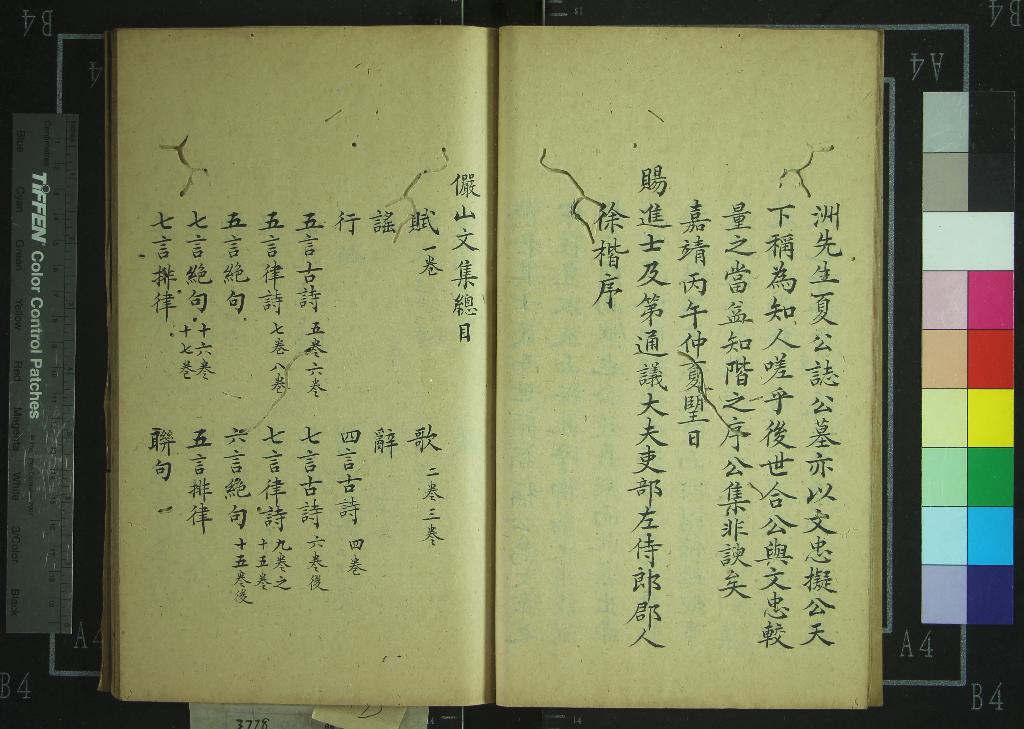 洲先生夏公誌公墓亦以文忠擬公天
下稱為知人嗟乎後世合公與文忠較
量之當益知階之序公集非諛矣
嘉靖丙午仲夏望日
賜進士及第通議大夫吏部左侍郎郡人
徐楷序
儼山文集總目
賦 一卷 歌 二卷三卷
謠 辭
行 四言古詩 四卷
五言古詩 五卷六卷 七言古詩 六卷後
五言律詩 七卷八卷 七言律詩 九卷之十五卷
五言絕句 六言絕句 十五卷後
七言絕句 十六卷 五言排律
七言排律 十七卷 聯句
TIFFEN Color Control Patches
Blue Cyan Green Yellow Red Magenta White 3/Color Black
Centimetres
B4
B4
A4
A4
B4
B4
3778